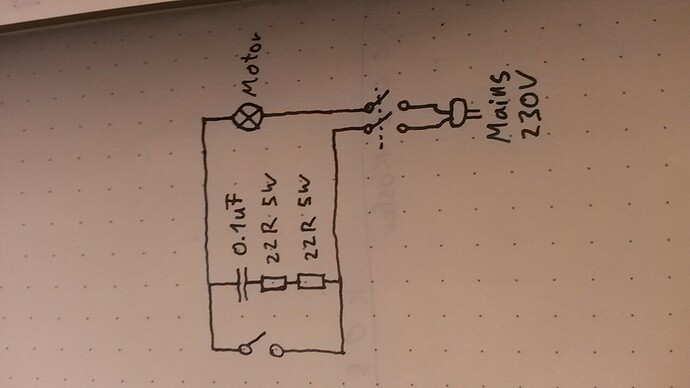 Motor
0.1uF
22R 5W
22R 5W
Mains
230V